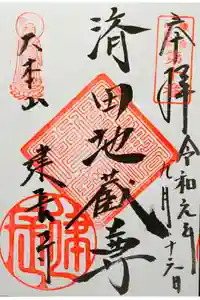 奉拝
令和元年
九月十六日
済田地蔵尊
大本山
建長寺